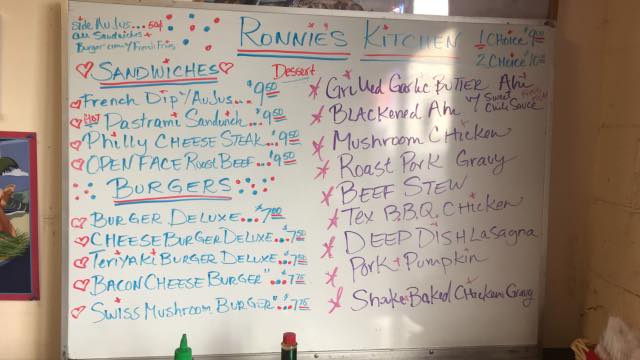 Side Au Jus...50¢
All Sandwiches +
Burger come w/ French Fries
RONNIE'S KITCHEN
1 CHOICE $9
2 CHOICE $10
SANDWICHES
Dessert
French Dip w/ Au Jus...$9.50
HOT Pastrami Sandwich $9.50
Philly CHEESE STEAK..$9.50
OPEN FACE Roast BEEF...$9.50
BURGERS
BURGER DELUXE...$7.00
CHEESE BURGER DELUXE...$7.50
Teriyaki BURGER DELUXE..$7.50
BACON CHEESE BURGER" "$7.75
SWISS MUSHROOM BURGER" $7.75
Grilled Garlic BUTTER Ahi
BLACKened Ahi w/ Sweet Chili Sauce
Mushroom CHicken
Roast Pork Gravy
BEEF STEW
Tex B.B.Q. CHicken
DEEP DISH Lasagna
Pork + Pumpkin
Shake+Baked Chicken Gravy